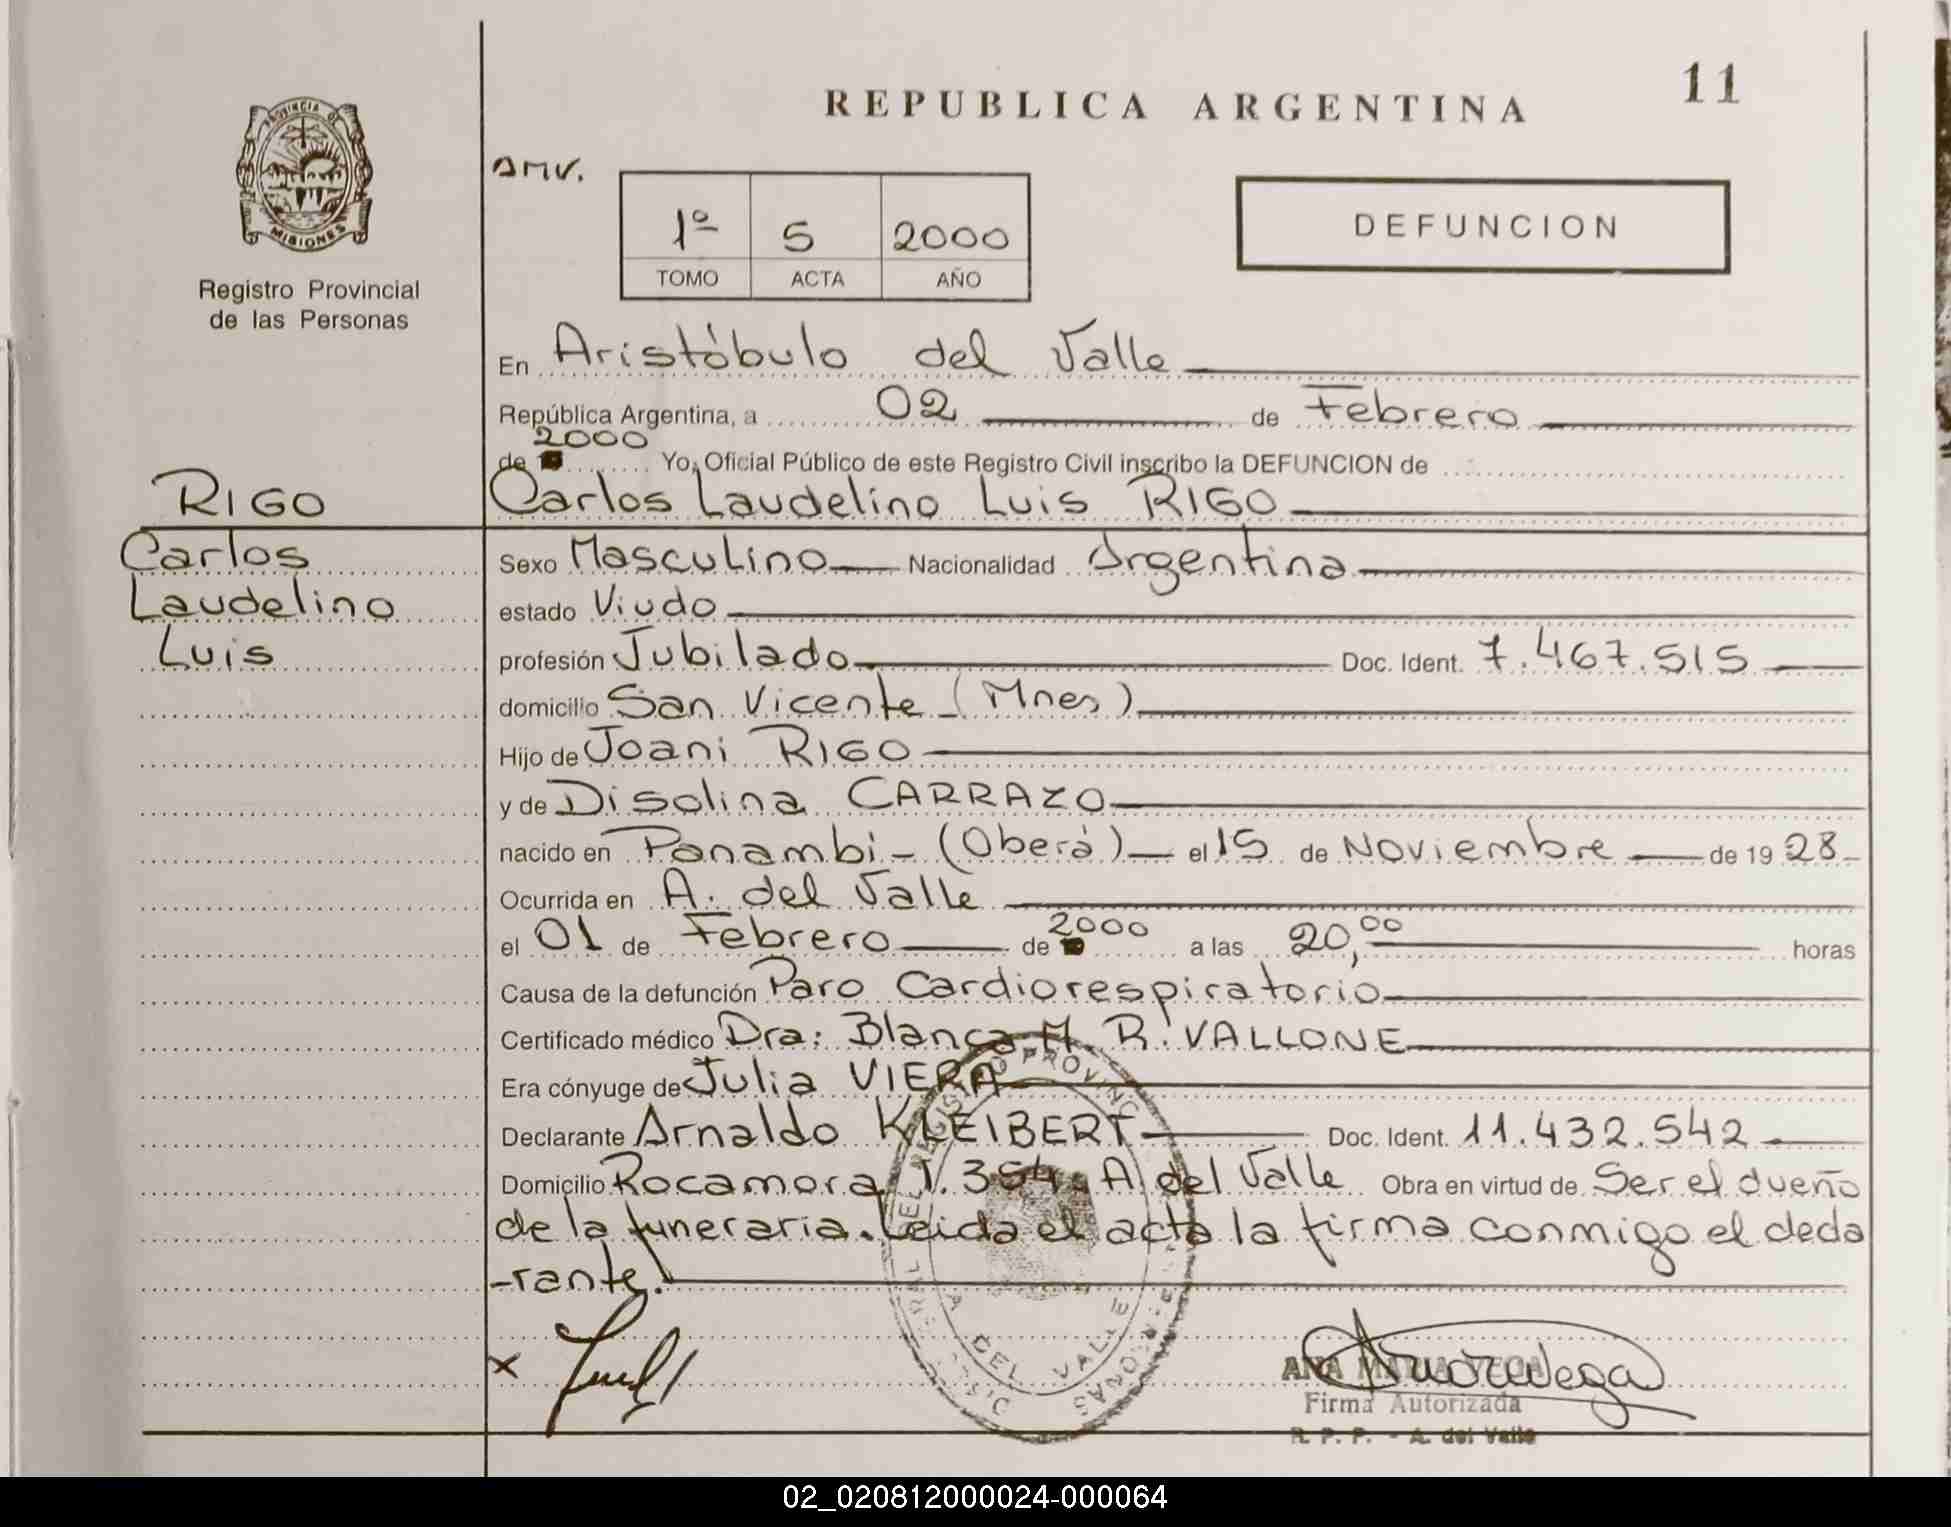 REPUBLICA ARGENTINA
11
PROVINCIA DE
MISIONES
Registro Provincial
de las Personas
AMV.
1º 5 2000
TOMO ACTA AÑO
DEFUNCION
En Aristóbulo del Valle
República Argentina, a 02 de Febrero
2000
de Yo, Oficial Público de este Registro Civil inscribo la DEFUNCION de
RIGO
Carlos Laudelino Luis RIGO
Carlos
Laudelino
Luis
Sexo Masculino Nacionalidad Argentina
estado Viudo
profesión Jubilado Doc. Ident. 7.467.515
domicilio San Vicente (Mnes)
Hijo de Joani RIGO
y de Disolina CARRAZO
nacido en Panambi - (Oberá) el 15 de Noviembre de 19 28
Ocurrida en A. del Valle
el 01 de Febrero de 2000 a las 20,00 horas
Causa de la defunción Paro Cardiorespiratorio
Certificado médico Dra: Blanca M. R. VALLONE
Era cónyuge de Julia VIERA
Declarante Arnaldo KLEIBERT Doc. Ident. 11.432.542
Domicilio Rocamora 1.354. A. del Valle Obra en virtud de Ser el dueño
de la funeraria. Leida el acta la firma conmigo el decla
-rante.
x
ANA MARIA VEGA
Firma Autorizada
R. P. P. - A. del Valle
A DEL VALLE
02_020812000024-000064